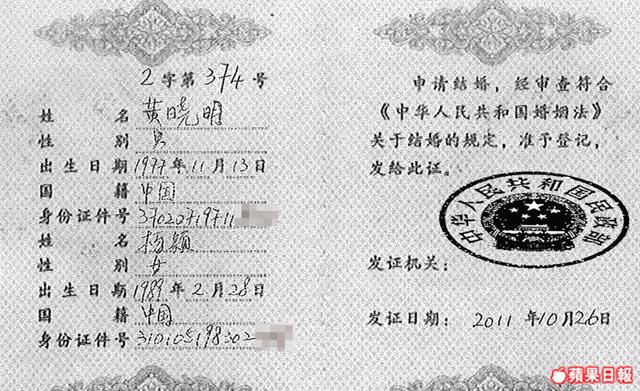 2字第374号
姓 名 黄晓明
性 别 男
出生日期 1977年11月13日
国 籍 中国
身份证件号 37020719711
姓 名 杨颖
性 别 女
出生日期 1989年2月28日
国 籍 中国
身份证件号 310105198302
申请结婚，经审查符合
《中华人民共和国婚烟法》
关于结婚的规定，准予登记，
发给此证。
中华人民共和国民政部
发证机关：
发证日期： 2011年10月26日
蘋果日報